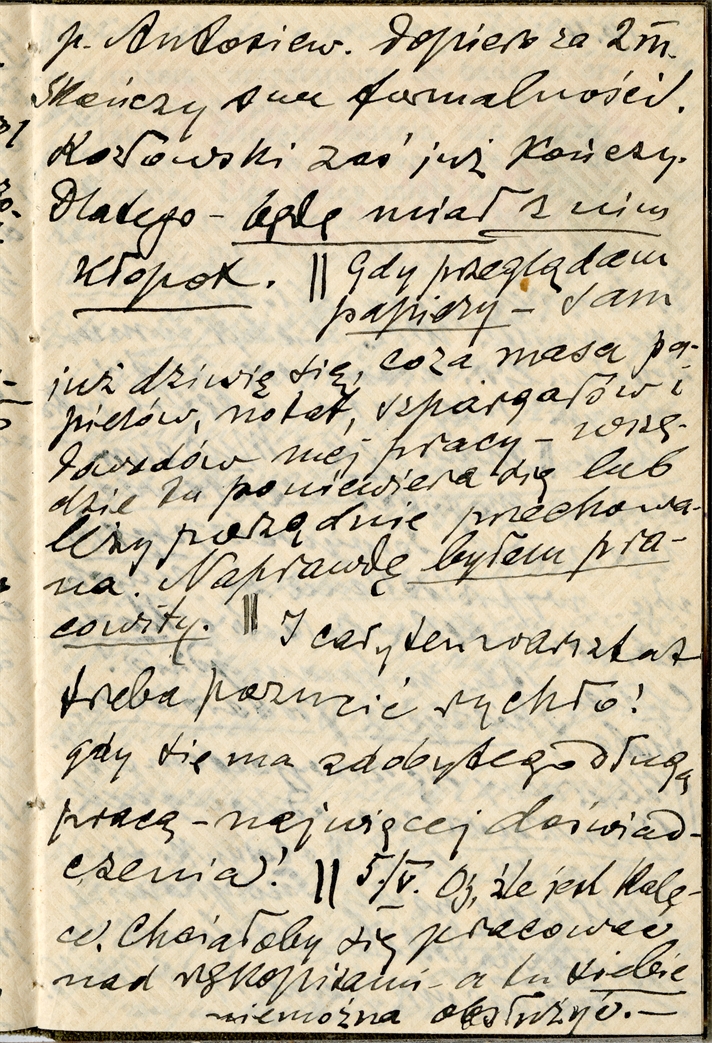 p. Antosiew. Dopiero za 2 m.
skończy swe formalności.
Kozłowski zaś już kończy.
Dlatego – będę miał z nim
kłopot. || Gdy przeglądam
papiery – sam
już dziwię się, co za masa pa-
pierów, notat, szpargałów i
dowodów mej pracy – wszę-
dzie tu poniewiera się lub
leży porządnie przechowa-
na. Naprawdę byłem pra-
cowity. || I cały ten warsztat
trzeba porzucić rychło!
gdy się ma zdobytego długą
pracą – najwięcej doświad-
czenia! || 5/V. Oj, źle jest kalé-
ce. Chciałoby się pracować
nad rękopisami – a tu siebie
niemożna obsłużyć. –